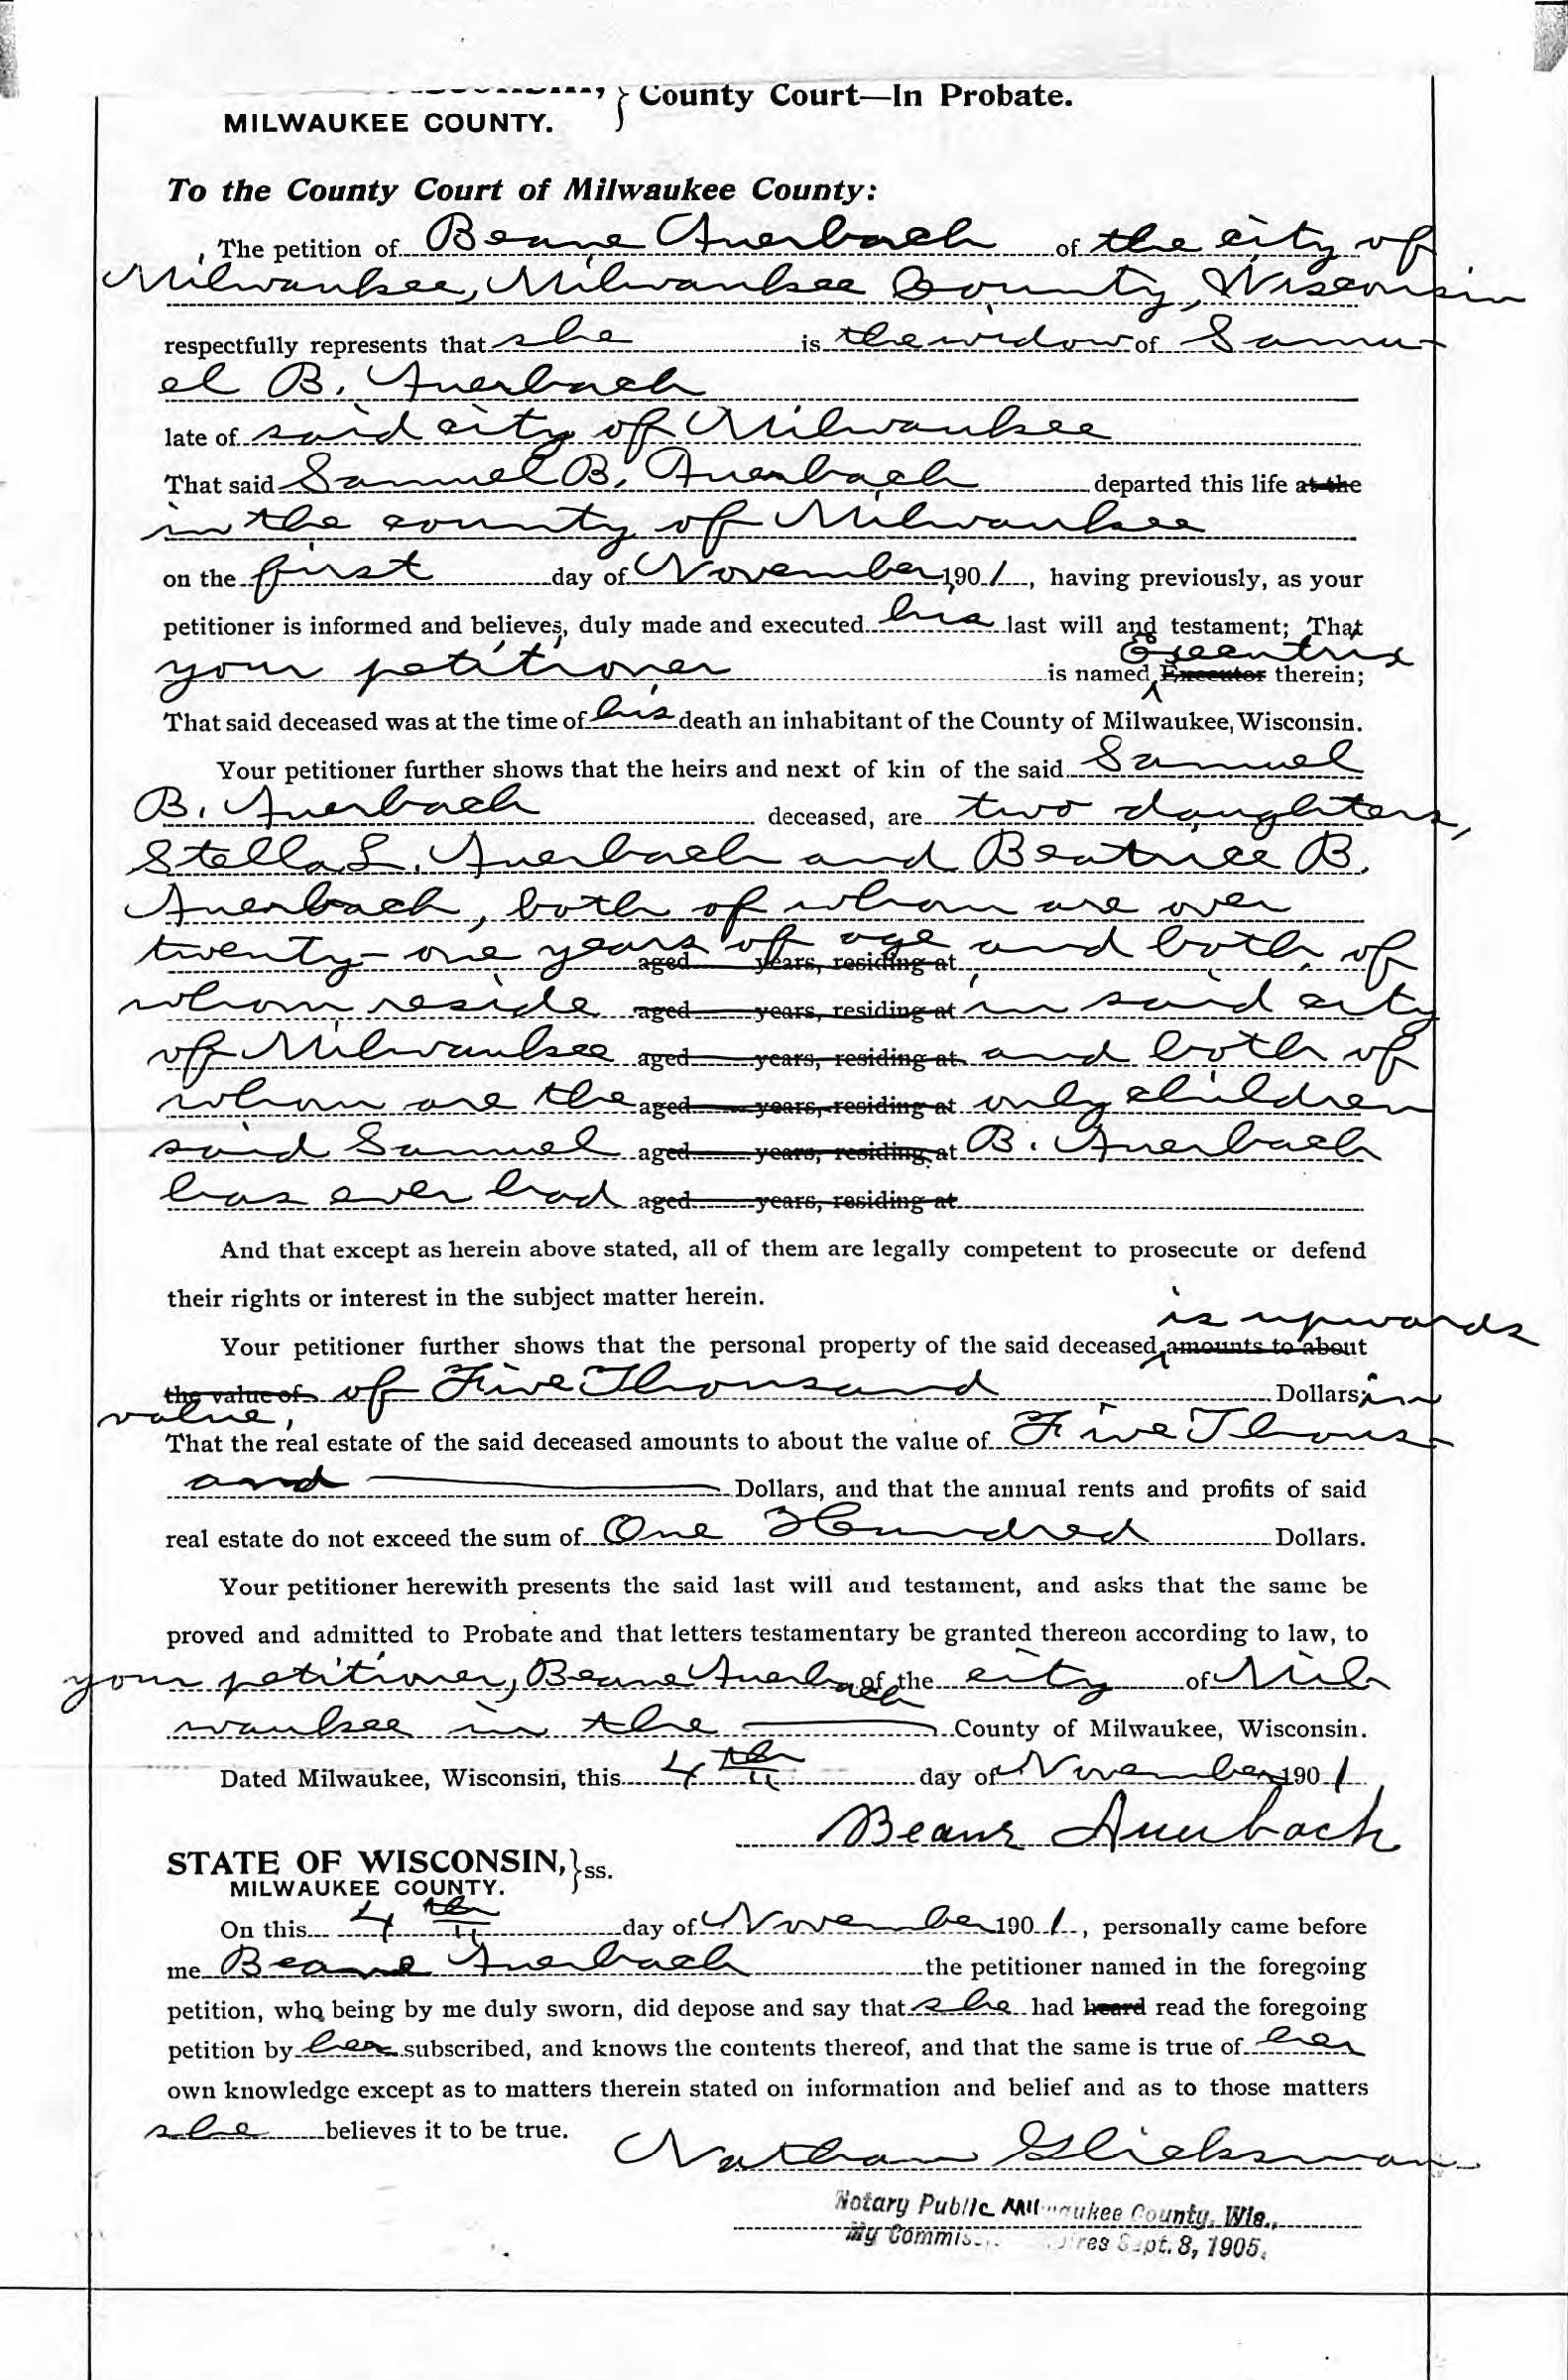 MILWAUKEE COUNTY. } County Court—In Probate.
To the County Court of Milwaukee County:
The petition of Beane Auerbach of the city of
Milwaukee, Milwaukee County, Wisconsin
respectfully represents that she is the widow of Samu-
el B. Auerbach
late of said city of Milwaukee
That said Samuel B. Auerbach departed this life at the
in the county of Milwaukee
on the first day of November 1901, having previously, as your
petitioner is informed and believes, duly made and executed his last will and testament; That
your petitioner is named Executrix Executor therein;
That said deceased was at the time of his death an inhabitant of the County of Milwaukee, Wisconsin.
Your petitioner further shows that the heirs and next of kin of the said Samuel
B. Auerbach deceased, are two daughters,
Stella L. Auerbach and Beatrice B.
Auerbach, both of whom are over
twenty-one years of age and both of aged years, residing at
whom reside aged years, residing at in said city
of Milwaukee aged years, residing at and both of
whom are the aged years, residing at only children
said Samuel aged years, residing at B. Auerbach
has ever had aged years, residing at
And that except as herein above stated, all of them are legally competent to prosecute or defend
their rights or interest in the subject matter herein.
is upwards
Your petitioner further shows that the personal property of the said deceased amounts to about
the value of of Five Thousand Dollars; in
value,
That the real estate of the said deceased amounts to about the value of Five Thous-
and Dollars, and that the annual rents and profits of said
real estate do not exceed the sum of One Hundred Dollars.
Your petitioner herewith presents the said last will and testament, and asks that the same be
proved and admitted to Probate and that letters testamentary be granted thereon according to law, to
your petitioner, Beane Auerbach of the city of Mil
waukee in the County of Milwaukee, Wisconsin.
Dated Milwaukee, Wisconsin, this 4th day of November 1901
Beane Auerbach
STATE OF WISCONSIN, } ss.
MILWAUKEE COUNTY.
On this 4th day of November 1901, personally came before
me Beane Auerbach the petitioner named in the foregoing
petition, who being by me duly sworn, did depose and say that she had heard read the foregoing
petition by her subscribed, and knows the contents thereof, and that the same is true of her
own knowledge except as to matters therein stated on information and belief and as to those matters
she believes it to be true.
Nathan Glicksman
Notary Public Milwaukee County, Wis.,
My Commis Sept. 8, 1905.